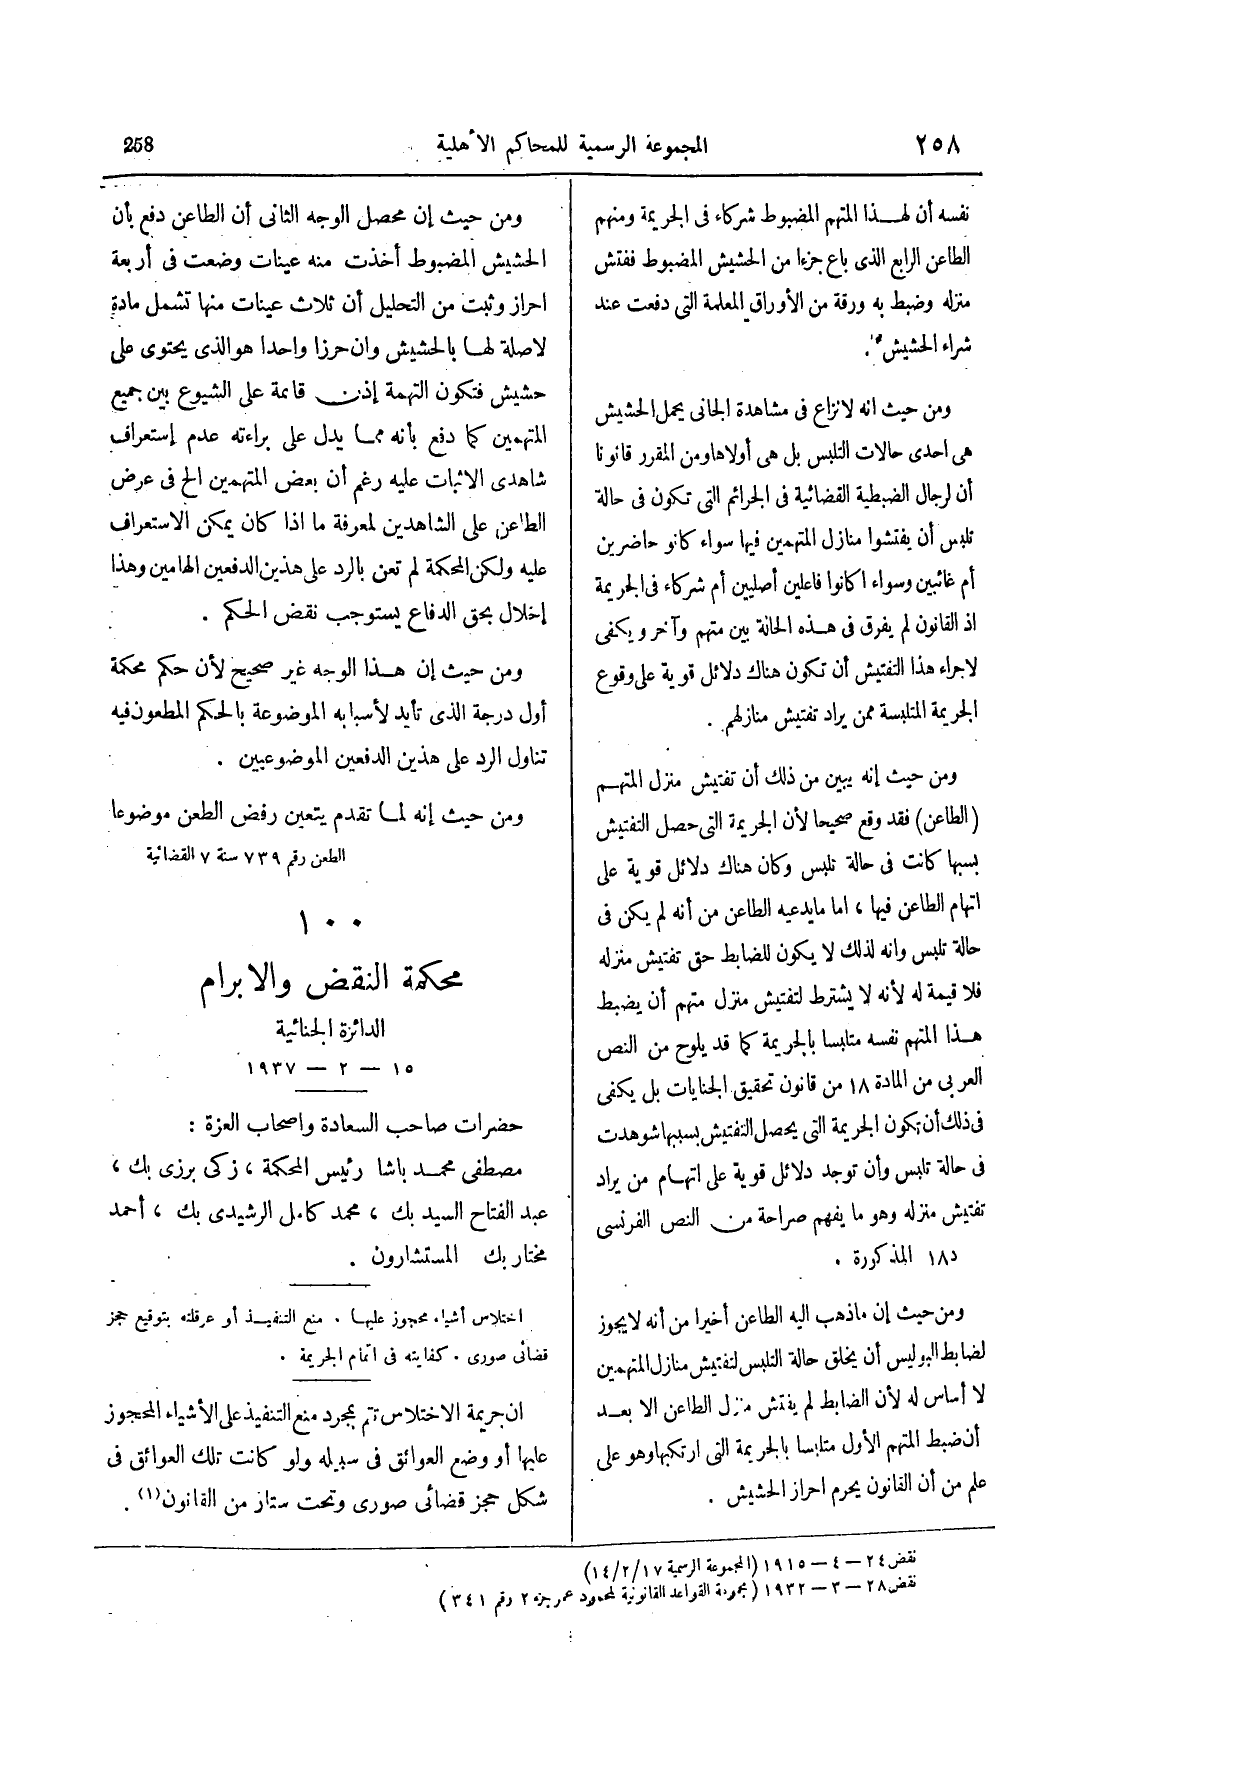 ٢٥٨
المجموعة الرسمية للمحاكم الأهلية
258
نفسه أن لهذا المتهم المضبوط شركاء فى الجريمة ومنهم
الطاعن الرابع الذى باع جزءا من الحشيش المضبوط ففتش
منزله وضبط به ورقة من الأوراق المعلمة التى دفعت عند
شراء الحشيش".
ومن حيث انه لانزاع فى مشاهدة الجانى يحمل الحشيش
هى احدى حالات التلبس بل هى أولاها ومن المقرر قانونا
أن لرجال الضبطية القضائية فى الجرائم التى تكون فى حالة
تلبس أن يفتشوا منازل المتهمين فيها سواء كانو حاضرين
أم غائبين وسواء اكانوا فاعلين أصليين أم شركاء فى الجريمة
اذ القانون لم يفرق فى هذه الحالة بين متهم وآخر ويكفى
لاجراء هذا التفتيش أن تكون هناك دلائل قوية على وقوع
الجريمة المتلبسة ممن يراد تفتيش منازلهم .
ومن حيث إنه يبين من ذلك أن تفتيش منزل المتهم
(الطاعن) فقد وقع صحيحا لأن الجريمة التى حصل التفتيش
بسببها كانت فى حالة تلبس وكان هناك دلائل قوية على
اتهام الطاعن فيها ، اما مايدعيه الطاعن من أنه لم يكن فى
حالة تلبس وانه لذلك لا يكون للضابط حق تفتيش منزله
فلا قيمة له لأنه لا يشترط لتفتيش منزل متهم أن يضبط
هذا المتهم نفسه متلبسا بالجريمة كما قد يلوح من النص
العربى من المادة ١٨ من قانون تحقيق الجنايات بل يكفى
فى ذلك أن تكون الجريمة التى يحصل التفتيش بسببها شوهدت
فى حالة تلبس وأن توجد دلائل قوية على اتهام من يراد
تفتيش منزله وهو ما يفهم صراحة من النص الفرنسى
د١٨ المذكورة .
ومن حيث إن ماذهب اليه الطاعن أخيرا من أنه لايجوز
لضابط البوليس أن يخلق حالة التلبس لتفتيش منازل المتهمين
لا أساس له لأن الضابط لم يفتش منزل الطاعن الا بعد
أن ضبط المتهم الأول متلبسا بالجريمة التى ارتكبها وهو على
علم من أن القانون يحرم احراز الحشيش .
ومن حيث إن محصل الوجه الثانى أن الطاعن دفع بأن
الحشيش المضبوط أخذت منه عينات وضعت فى أربعة
احراز وثبت من التحليل أن ثلاث عينات منها تشمل مادة
لاصلة لها بالحشيش وان حرزا واحدا هو الذى يحتوى على
حشيش فتكون التهمة إذن قائمة على الشيوع بين جميع
المتهمين كما دفع بأنه مما يدل على براءته عدم إستعراف
شاهدى الاثبات عليه رغم أن بعض المتهمين الح فى عرض
الطاعن على الشاهدين لمعرفة ما اذا كان يمكن الاستعراف
عليه ولكن المحكمة لم تعن بالرد على هذين الدفعين الهامين وهذا
إخلال بحق الدفاع يستوجب نقض الحكم .
ومن حيث إن هذا الوجه غير صحيح لأن حكم محكمة
أول درجة الذى تأيد لأسبابه الموضوعة بالحكم المطعون فيه
تناول الرد على هذين الدفعين الموضوعيين .
ومن حيث إنه لما تقدم يتعين رفض الطعن موضوعا
الطعن رقم ٧٣٩ سنة ٧ القضائية
١٠٠
محكمة النقض والابرام
الدائرة الجنائية
١٥ — ٢ — ١٩٣٧
حضرات صاحب السعادة واصحاب العزة :
مصطفى محمد باشا رئيس المحكمة ، زكى برزى بك ،
عبد الفتاح السيد بك ، محمد كامل الرشيدى بك ، أحمد
مختار بك المستشارون .
اختلاس أشياء محجوز عليها . منع التنفيذ أو عرقلته بتوقيع حجز
قضائى صورى . كفايته فى اتمام الجريمة .
ان جريمة الاختلاس تتم بمجرد منع التنفيذ على الأشياء المحجوز
عليها أو وضع العوائق فى سبيله ولو كانت تلك العوائق فى
شكل حجز قضائى صورى وتحت ستار من القانون (١) .
نقض ٢٤ — ٤ — ١٩١٥ (المجموعة الرسمية ١٤/٢/١٧)
نقض ٢٨ — ٣ — ١٩٣٢ (مجموعة القواعد القانونية لمحمود عمر جزء ٢ رقم ٣٤١)